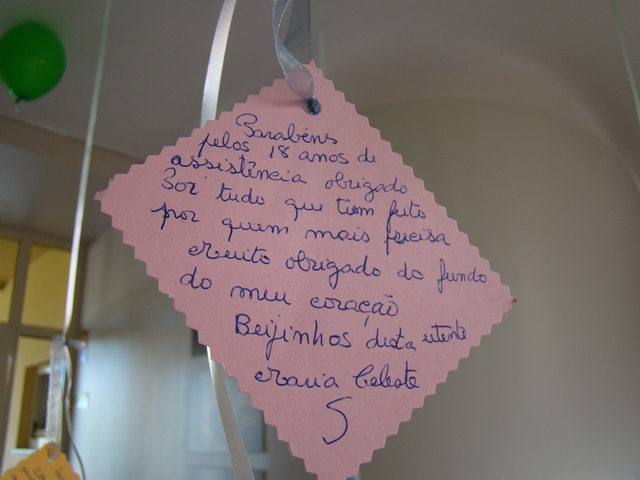 Parabéns
pelos 18 anos de
assistência obrigado
Por tudo que tem feito
por quem mais precisa
Muito obrigado do fundo
do meu coração
Beijinhos desta utente
Maria Celeste
S